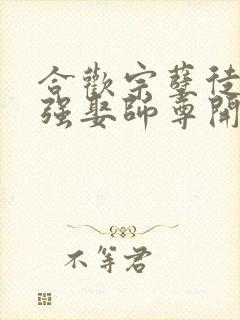 合歡宗孽徒
强娶師尊開
不等君